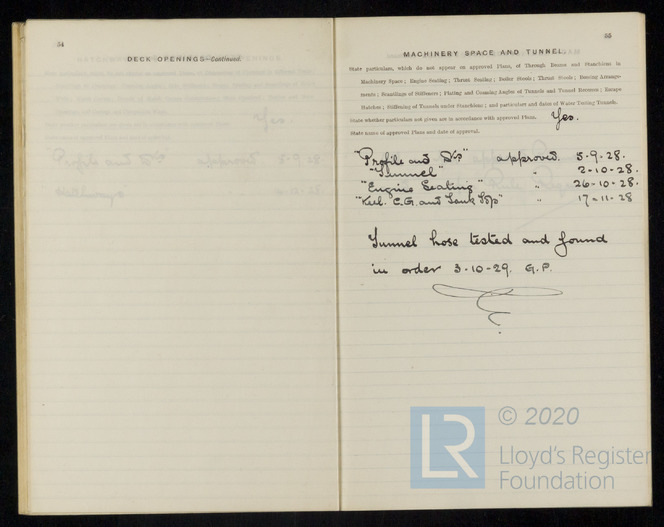 54
DECK OPENINGS—Continued.
55
MACHINERY SPACE AND TUNNEL.
State particulars, which do not appear on approved Plans, of Through Beams and Stanchions in
Machinery Space; Engine Seating; Thrust Seating; Boiler Stools; Thrust Stools; Bossing Arrange-
ments; Scantlings of Stiffeners; Plating and Coaming Angles of Tunnels and Tunnel Recesses; Escape
Hatches; Stiffening of Tunnels under Stanchions; and particulars and dates of Water Testing Tunnels.
State whether particulars not given are in accordance with approved Plans. Yes.
State name of approved Plans and date of approval.
"Profile and Dks" approved 5-9-28.
"Tunnel" " 2-10-28.
"Engine Seating" " 26-10-28.
"Keel. C.G. and Tank Top" " 17-11-28
Tunnel hose tested and found
in order 3-10-29. G.P.
LR
© 2020
Lloyd's Register
Foundation